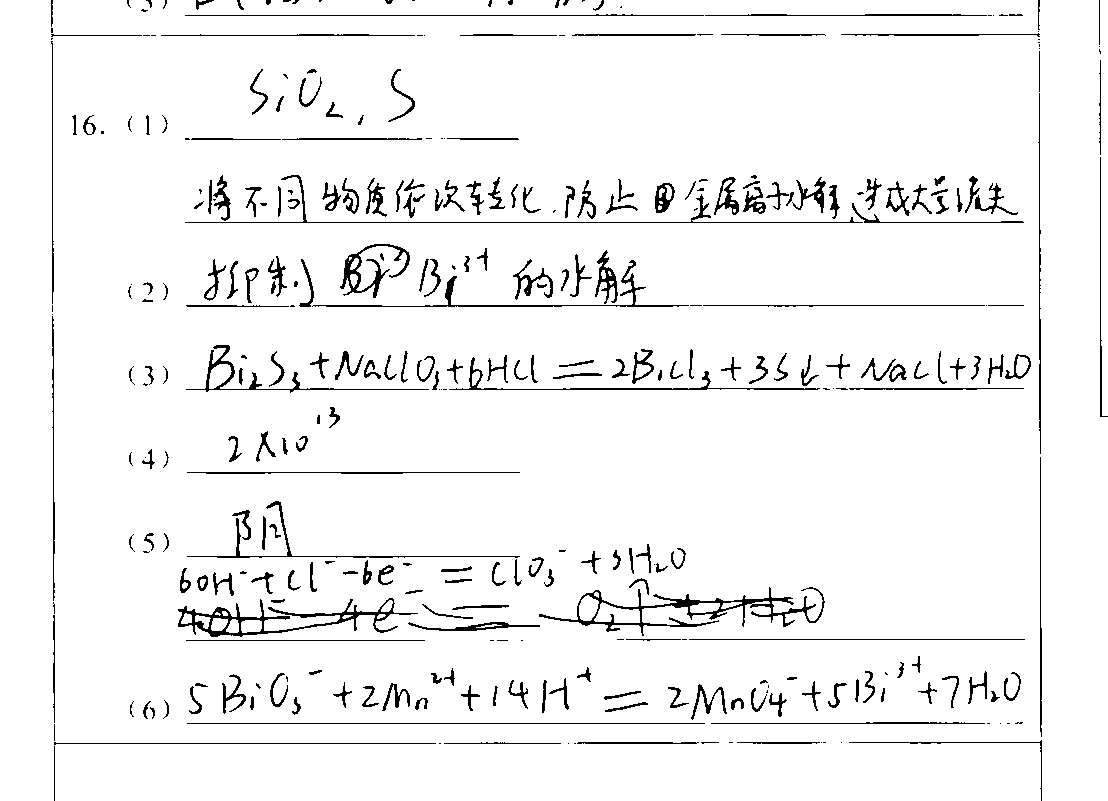 16. (1) SiO₂, S
将不同物质依次转化,防止金属离子水解造成大量流失
(2) 抑制 Bi³⁺ 的水解
(3) Bi₂S₃+NaClO₃+6HCl=2BiCl₃+3S↓+NaCl+3H₂O
(4) 2×10¹³
(5) 阴
6OH⁻+Cl⁻-6e⁻=ClO₃⁻+3H₂O
4OH⁻ 4e⁻ = O₂↑+2H₂O
(6) 5BiO₃⁻+2Mn²⁺+14H⁺=2MnO₄⁻+5Bi³⁺+7H₂O